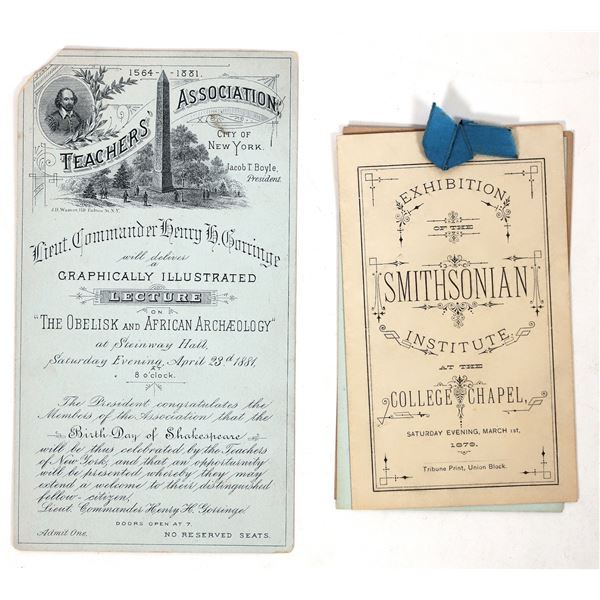 1564-1881.
TEACHERS' ASSOCIATION
CITY OF
NEW YORK.
Jacob T. Boyle,
President.
Lieut. Commander Henry H. Gorringe
will deliver
a
GRAPHICALLY ILLUSTRATED
LECTURE
ON
"THE OBELISK AND AFRICAN ARCHÆOLOGY"
at Steinway Hall,
Saturday Evening, April 23rd 1881,
AT
8 o'clock.
The President congratulates the
Members of the Association that the
Birth Day of Shakespeare
will be thus celebrated by the Teachers
of New York, and that an opportunity
will be presented whereby they may
extend a welcome to their distinguished
fellow-citizen,
Lieut. Commander Henry H. Gorringe
DOORS OPEN AT 7.
Admit One. NO RESERVED SEATS.
EXHIBITION
OF THE
SMITHSONIAN
INSTITUTE
AT THE
COLLEGE CHAPEL,
SATURDAY EVENING, MARCH 1ST,
1879.
Tribune Print, Union Block.